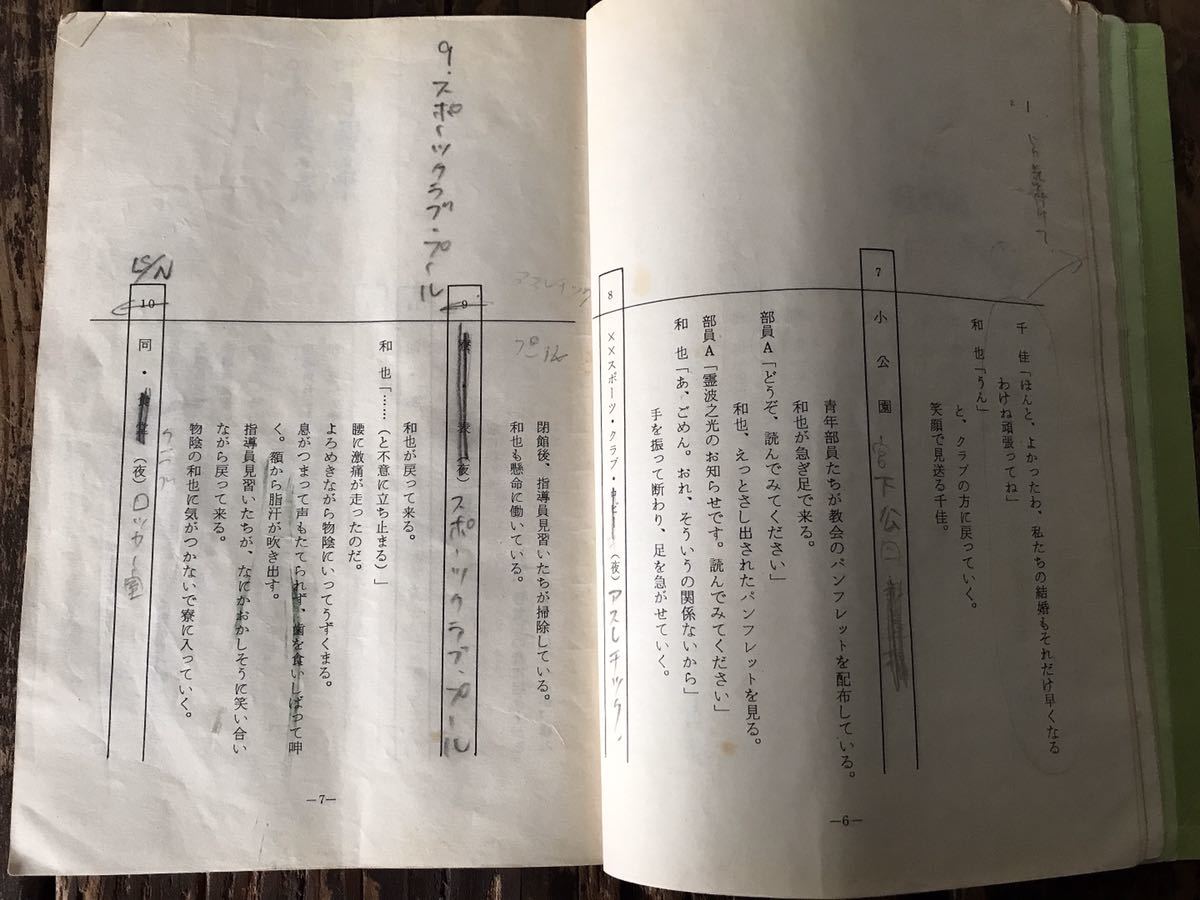 千　佳「ほんと、よかったわ、私たちの結婚もそれだけ早くなる
わけね頑張ってね」
和　也「うん」
と、クラブの方に戻っていく。
笑顔で見送る千佳。
7　小公園　宮下公園
青年部員たちが教会のパンフレットを配布している。
和也が急ぎ足で来る。
部員A「どうぞ、読んでみてください」
和也、えっとさし出されたパンフレットを見る。
部員A「霊波之光のお知らせです。読んでみてください」
和　也「あ、ごめん。おれ、そういうの関係ないから」
手を振って断わり、足を急がせていく。
8　××スポーツ・クラブ・　（夜）アスレチック・
—6—
アスレチック
プール
閉館後、指導員見習いたちが掃除している。
和也も懸命に働いている。
9.スポーツクラブ・プール
9　寮・表（夜）スポーツクラブ・プール
和也が戻って来る。
和　也「……（と不意に立ち止まる）」
腰に激痛が走ったのだ。
よろめきながら物陰にいってうずくまる。
息がつまって声もたてられず、歯を食いしばって呻
く。額から脂汗が吹き出す。
指導員見習いたちが、なにかおかしそうに笑い合い
ながら戻って来る。
物陰の和也に気がつかないで寮に入っていく。
10　同・　（夜）ロッカー室
—7—